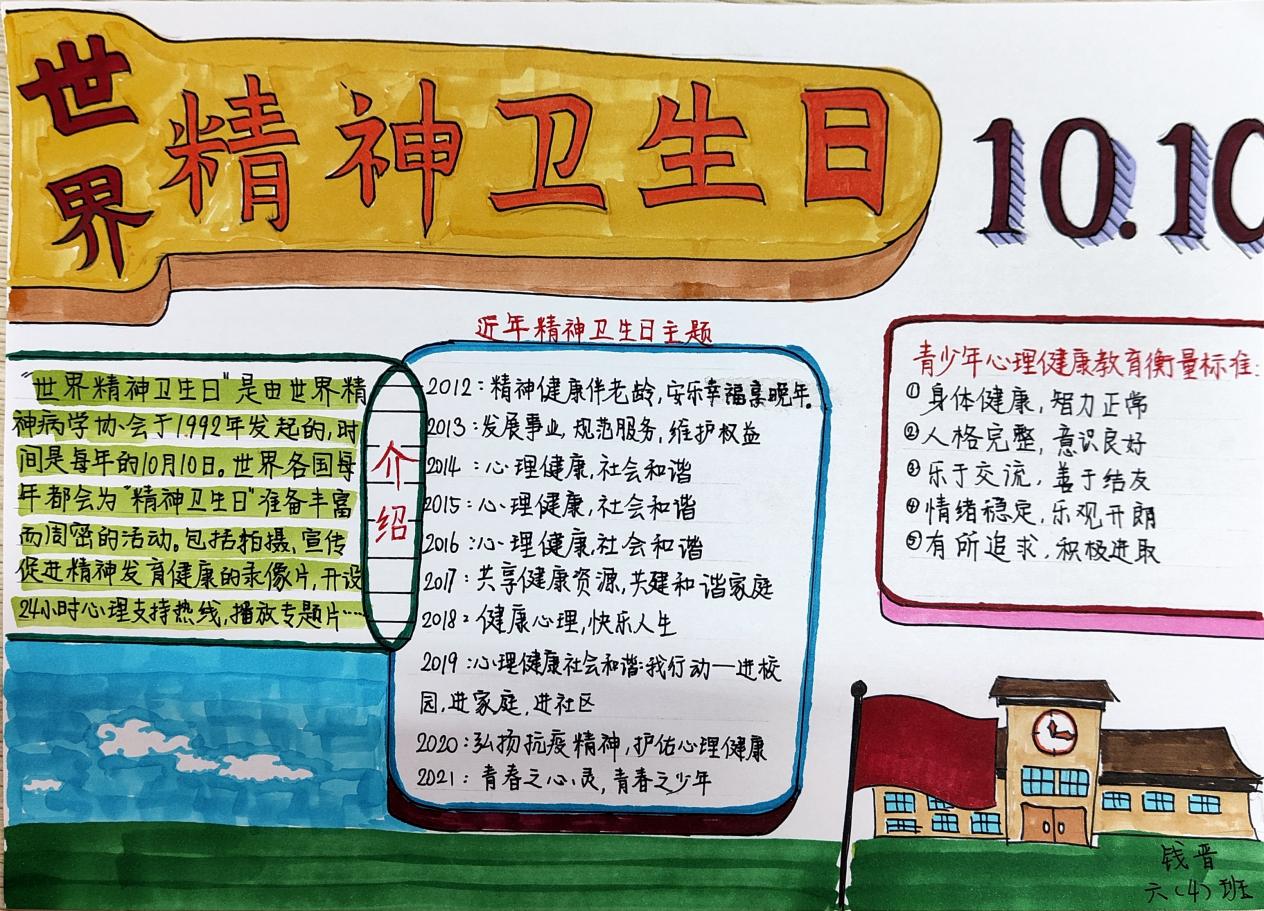 世界
精神卫生日
10.10
"世界精神卫生日"是由世界精
神病学协会于1992年发起的,时
间是每年的10月10日。世界各国每
年都会为"精神卫生日"准备丰富
而周密的活动。包括拍摄、宣传
促进精神发育健康的录像片,开设
24小时心理支持热线,播放专题片……
介绍
近年精神卫生日主题
2012:精神健康伴老龄,安乐幸福享晚年。
2013:发展事业,规范服务,维护权益
2014:心理健康,社会和谐
2015:心理健康,社会和谐
2016:心理健康,社会和谐
2017:共享健康资源,共建和谐家庭
2018:健康心理,快乐人生
2019:心理健康社会和谐:我行动—进校
园,进家庭,进社区
2020:弘扬抗疫精神,护佑心理健康
2021:青春之心灵,青春之少年
青少年心理健康教育衡量标准:
①身体健康,智力正常
②人格完整,意识良好
③乐于交流,善于结友
④情绪稳定,乐观开朗
⑤有所追求,积极进取
钱晋
六(4)班